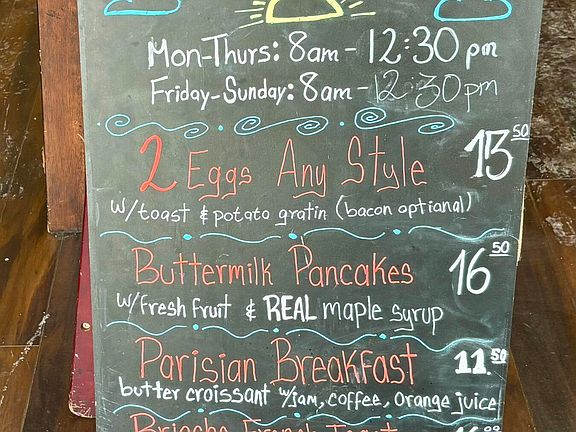 Mon-Thurs: 8am - 12:30 pm
Friday-Sunday: 8am - 12:30pm
2 Eggs Any Style 13 50
w/toast & potato gratin (bacon optional)
Buttermilk Pancakes 16 50
w/fresh fruit & REAL maple syrup
Parisian Breakfast 11 50
butter croissant w/jam, coffee, orange juice
Brioche French Toast